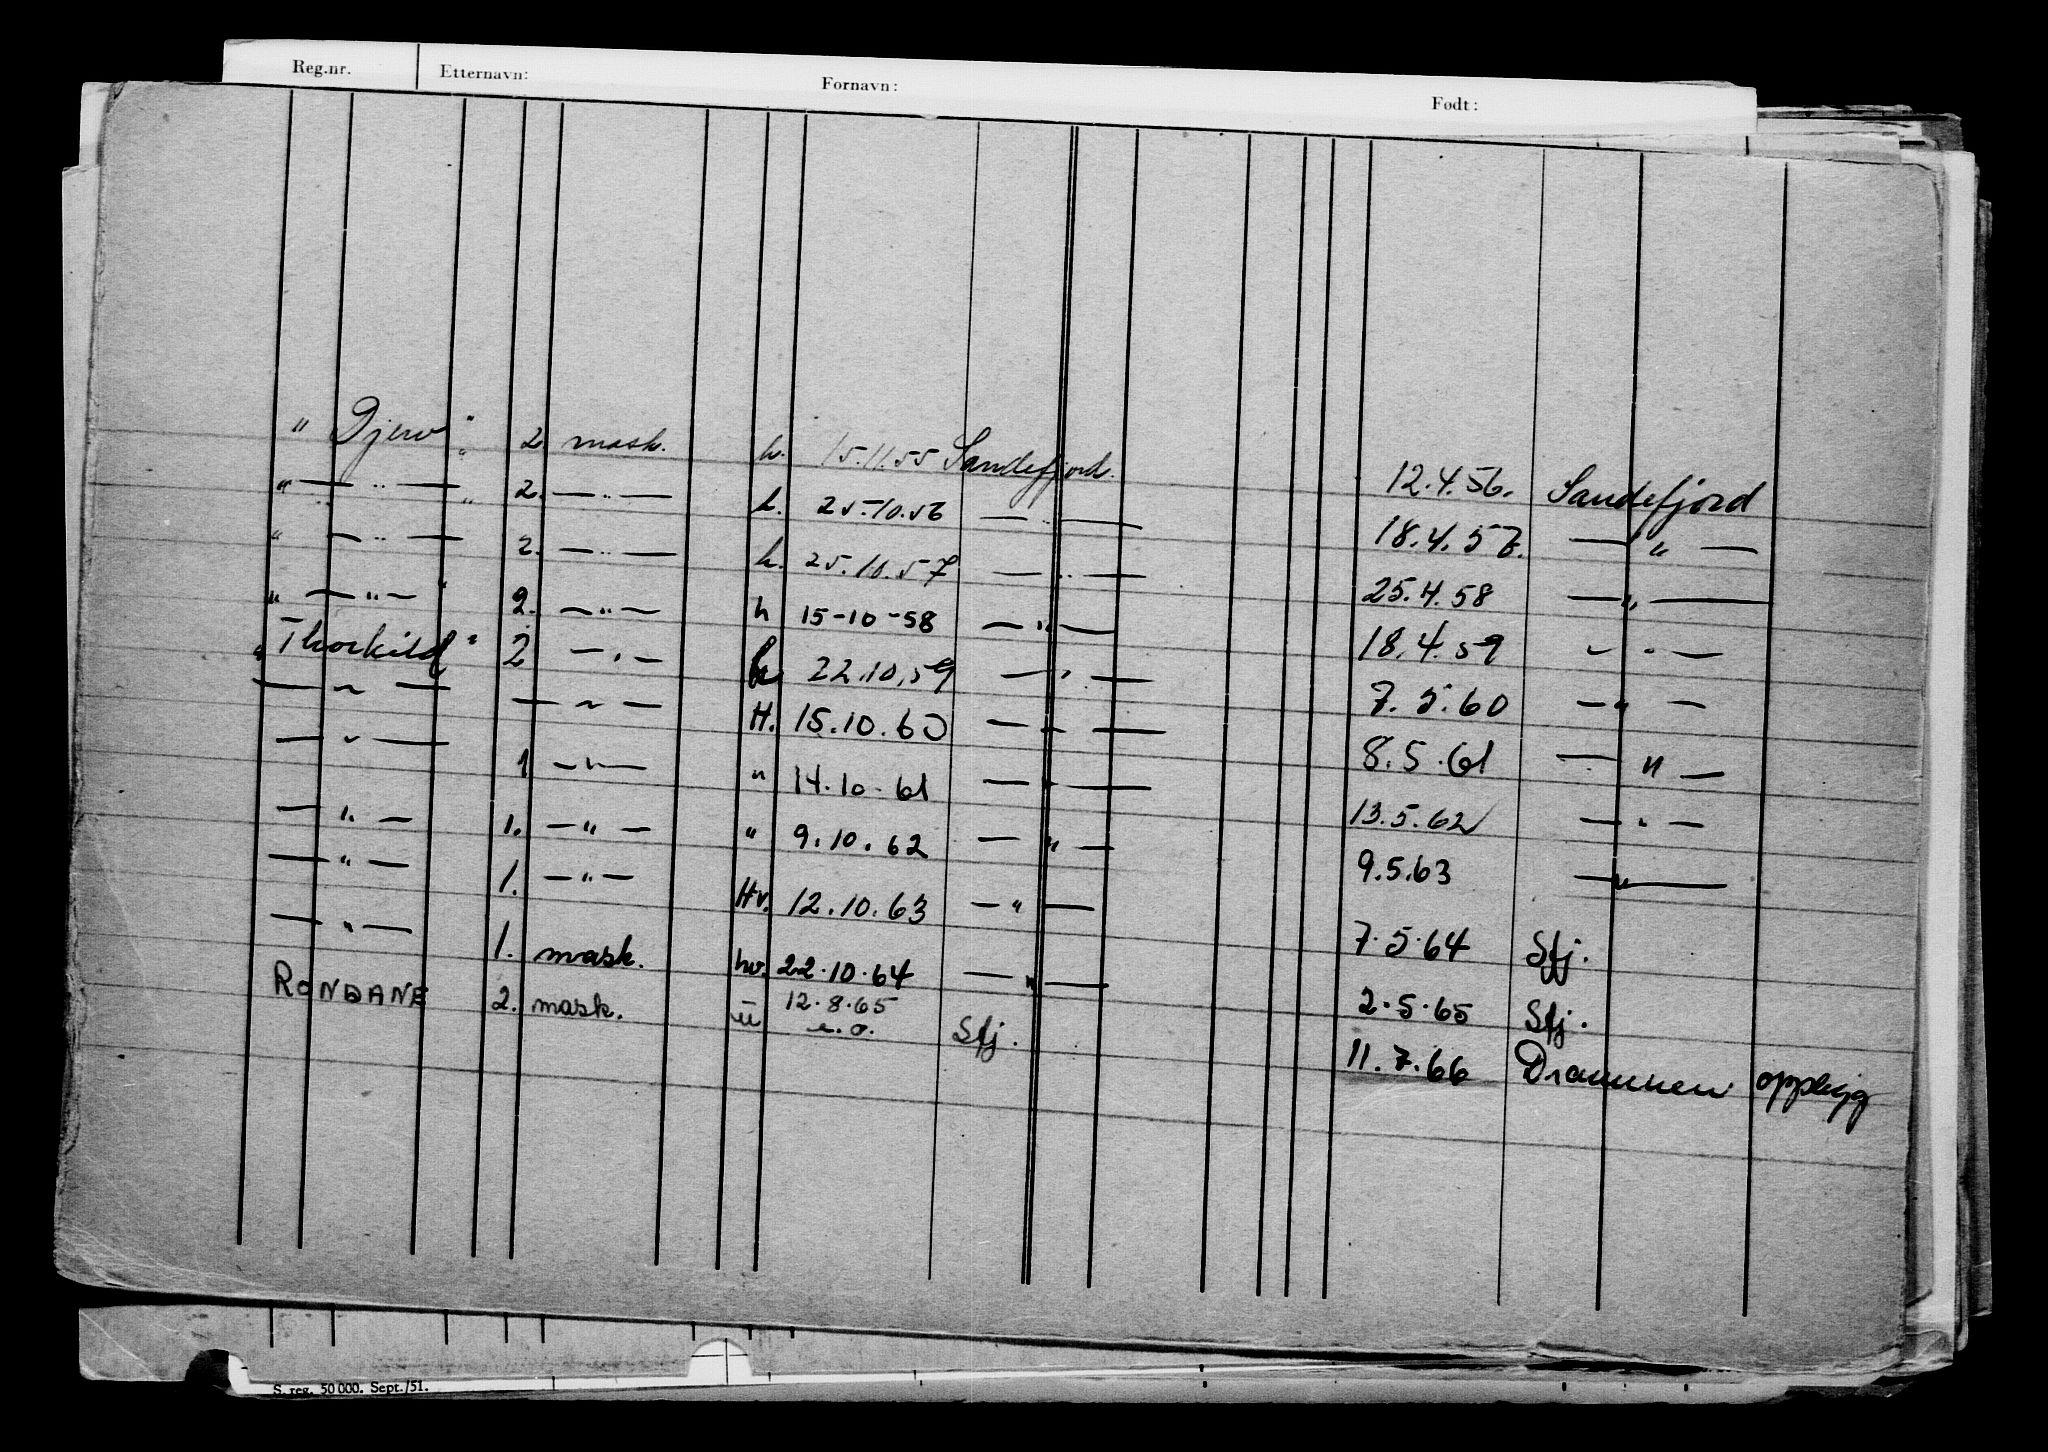 Reg.nr. Etternavn: Fornavn: Født:
" Djerv " 2 mask. h. 15.11.55 Sandefjord. 12.4.56. Sandefjord
" — " — " 2. — " — h. 25.10.56 — " — 18.4.57. — " —
" — " — 2. — " — h. 25.10.57 — " — 25.4.58 — " —
" — " — " 2. — " — h 15-10-58 — " — 18.4.59 — " —
" Thorkild " 2 — " — h 22.10.59 — " — 7.5.60 — " —
— " — — " — H. 15.10.60 — " — 8.5.61 — " —
— " — 1 — " — " 14.10.61 — " — 13.5.62 — " —
— " — 1. — " — " 9.10.62 — " — 9.5.63 — " —
— " — 1. — " — Hv. 12.10.63 — " — 7.5.64 Sfj.
— " — 1. mask. hv. 22.10.64 — " — 2.5.65 Sfj.
RONDANE 2. mask. u 12.8.65 Sfj. 11.7.66 Drammen opplagg
S. reg. 50 000. Sept./51.